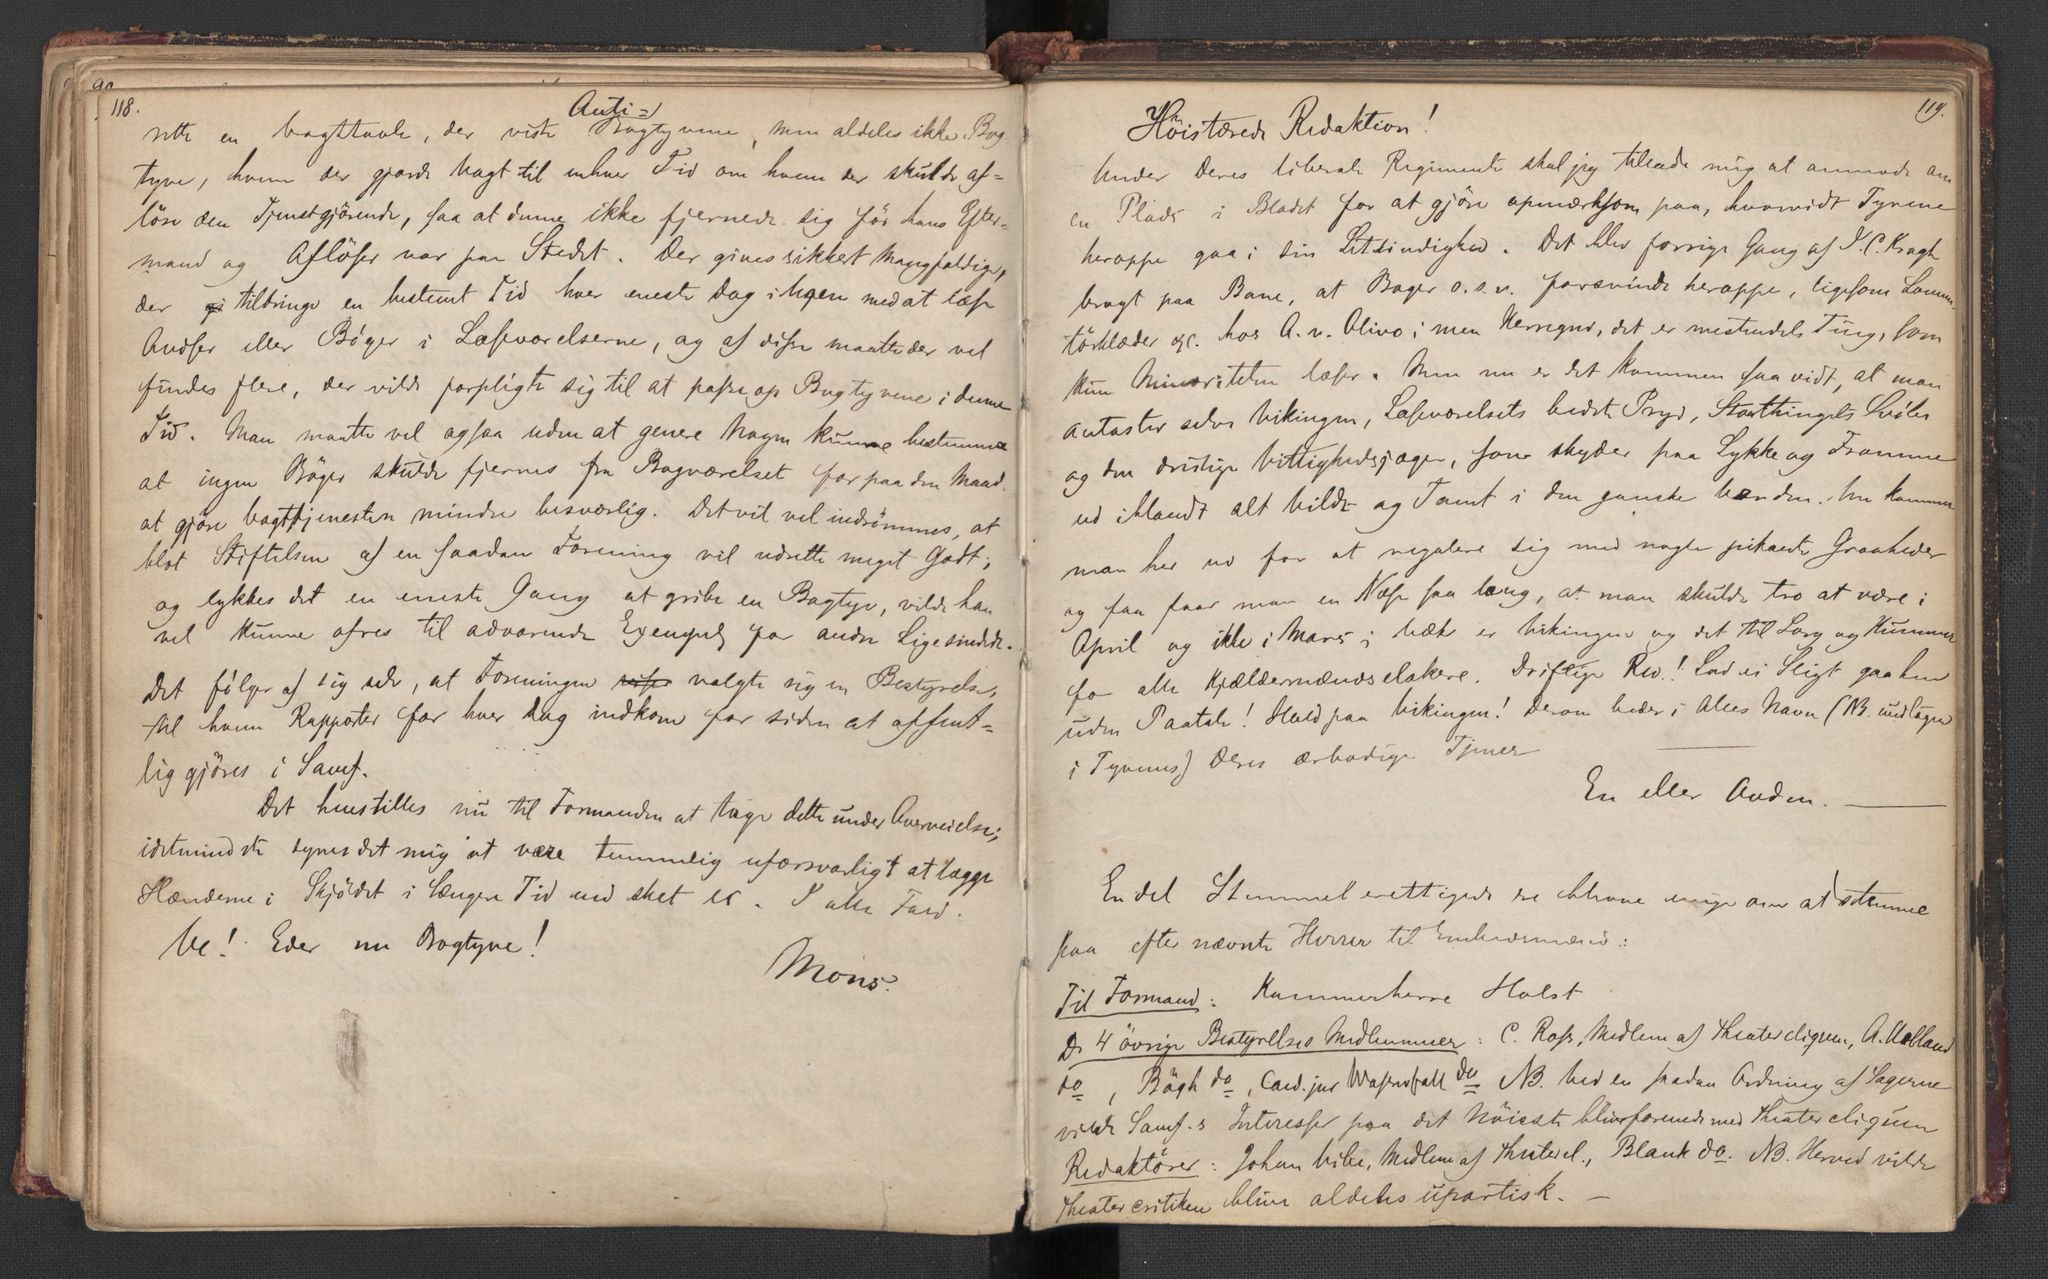 118.
rette en Vagttavle, der viste Anti=Bogtyvene, men aldeles ikke Bog
tyve, hvem der gjorde Vagt til enhver Tid om hvem der skulde af=
löse den Tjenstgjörende, saa at denne ikke fjernede sig för hans Efter-
mand og Aflöser var paa Stedet. Der gives sikkert Mangfoldige,
der tilbringe en bestemt Tid hver eneste Dag i Ugen med at læse
Aviser eller Böger i Læseværelserne, og af disse maatte der vel
findes flere, der vilde forpligte sig til at passe op Bogtyvene i denne
Tid. Man maatte vel ogsaa uden at genere Nogen kunne bestemme
at ingen Böger skulde fjernes fra Bogværelset for paa den Maade
at gjöre Vagttjenesten mindre besværlig. Det vil vel indrömmes, at
blot Stiftelsen af en saadan Forening vil udrette meget Godt;
og lykkes det en eneste Gang at gribe en Bogtyv, vilde han
vel kunne ofres til advarende Exempel for andre Ligesindede.
Det fölger af sig selv, at Foreningen valgte sig en Bestyrelse,
til hvem Rapporter for hver Dag indkom for siden at offent=
lig gjöres i Samf.
Det henstilles nu til Formanden at tage dette under Overveielse;
idetmindste synes det mig at være temmelig uforsvarligt at lægge
Hænderne i Skjödet i længere Tid end sket er. I alle Fald.
Ve! Eder nu Bogtyve!
Mons.
119.
Höistærede Redaktion!
Under Deres liberale Regimente skal jeg tillade mig at anmode om
en Plads i Bladet for at gjöre opmærksom paa, hvorvidt Tyvene
heroppe gaa i sin Letsindighed. Det blev forrige Gang af J. C. Kragh
bragt paa Bane, at Bøger o.s.v. forsvinde heroppe, ligesom Lomme
törklæder &c. hos A. v. Olivo; men Herregud, det er mestendels Ting, som
kun Minoriteten læser. Men nu er det kommen saa vidt, at man
antaster selve Vikingen, Læseværelsets bedste Pryd, Storthingets Svöbe
og den drislige Vittighedsjæger, som skyder paa Lykke og Fromme
ud iblandt alt Vildt og Tamt i den ganske Verden. Nu kommer
man her ud for at regalere sig med nogle pikante Grovheder
og saa faar man en Næse saa lang, at man skulde tro at være i
April og ikke i Mars; væk er Vikingen og det til Sorg og Kummer
for alle Kjældermænds elskere. Driftige Red.! Lad ei Sligt gaa hen
uden Paatale! Hold paa Vikingen! Derom beder i Alles Navn (NB. undtagen
i Tyvens) Deres ærbødige Tjener
En eller Anden.
En del Stemmeberettigede ere blevne enige om at stemme
paa efter nævnte Herrer til Embedsmænd:
Til Formand: Kammerherre Holst
De 4 övrige Bestyrelses Medlemmer: C. Ross, Medlem af Theatercliquen, A. Holland
do, Bögh do, Cand. jur Wasenfall do NB. Ved en saadan Ordning af Sagerne
vilde Samf.s Interesser paa det Nöieste blive forenede med Theatercliquen
Redaktörer: Johan Vibe, Medlem af Theatercl., Blank do. NB. Herved vilde
theatercritiken blive aldeles upartisk. –